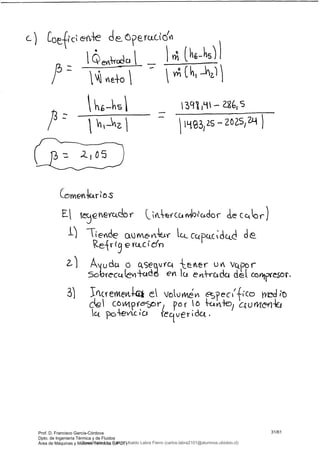 c.) Coeficiente de Operación
β = | Q̇ entrada | / | Ẇ neto | = | ṁ (h6-h5) | / | ṁ (h1-h2) |
β = | h6-h5 | / | h1-h2 | = 1398,41 - 286,5 / | 1483,25 - 2025,24 |
β = 2,05
Comentarios
El regenerador (intercambiador de calor)
1) Tiende aumentar la capacidad de
Refrigeración
2) Ayuda o asegura tener un vapor
sobrecalentado en la entrada del compresor.
3) Incrementa el volumén específico medio
del compresor, por lo tanto, aumenta
la potencia requerida.
Prof. D. Francisco García-Córdova
Dpto. de Ingeniería Térmica y de Fluidos
Área de Máquinas y Motores Térmicos (UPCT)
(carlos.labra2101@alumnos.ubiobio.cl)
31/61